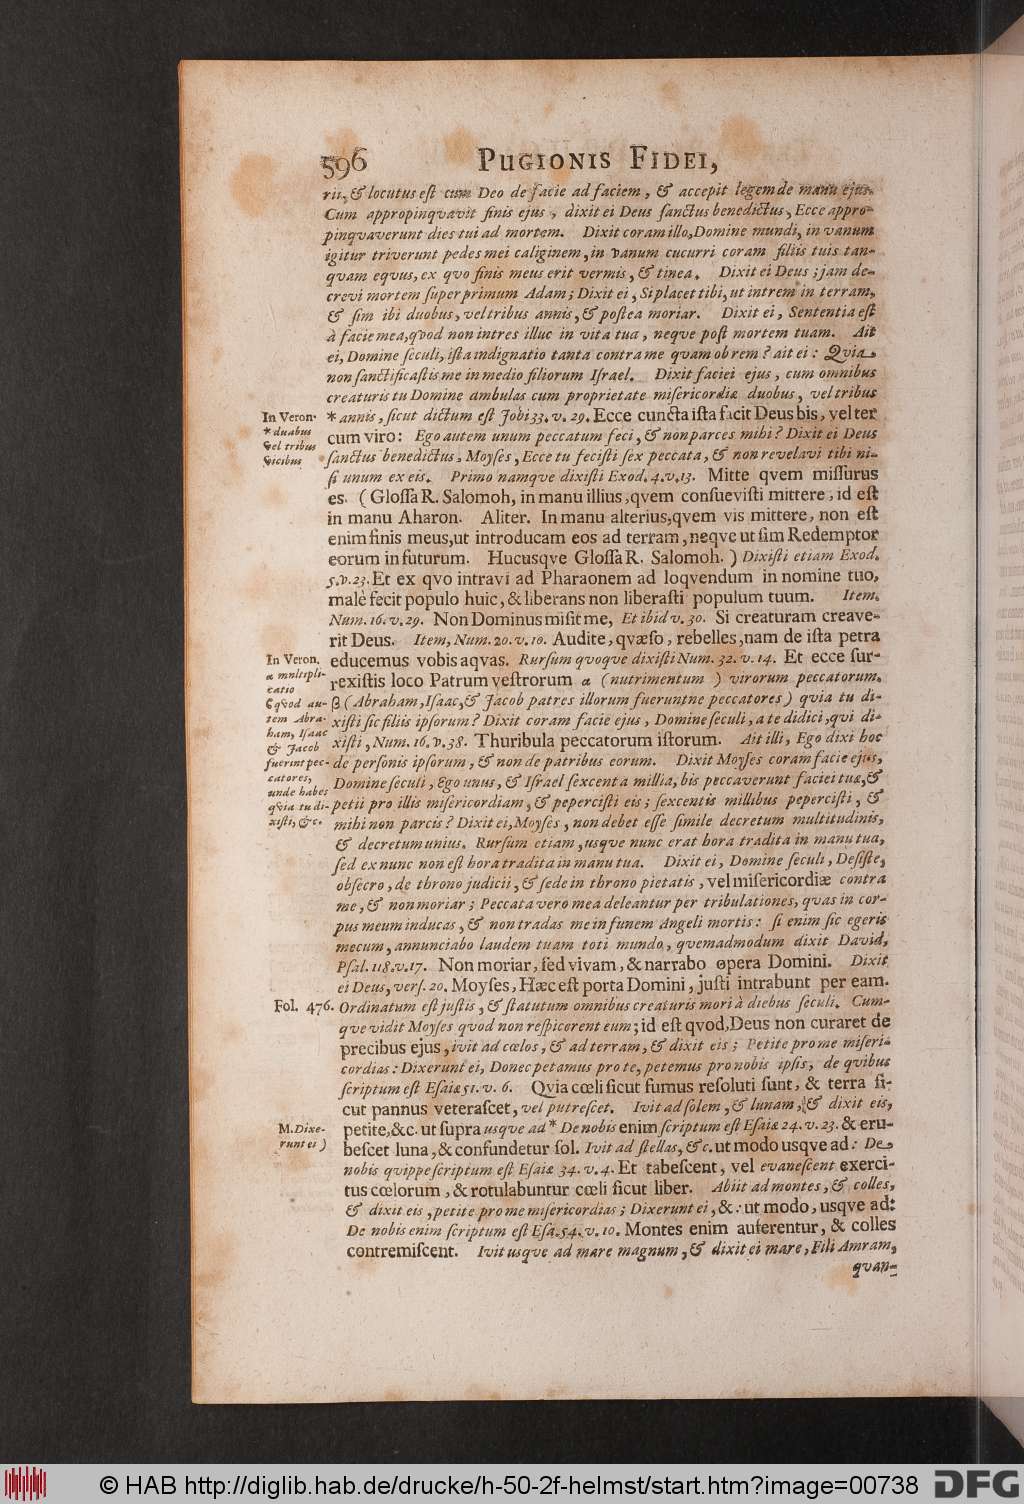 596 PUGIONIS FIDEI,
rii, & locutus est cum Deo de facie ad faciem, & accepit legem de manu ejus.
Cum appropinqvavit finis ejus, dixit ei Deus sanctus benedictus, Ecce appro-
pinqvaverunt dies tui ad mortem. Dixit coram illo, Domine mundi, in vanum
igitur triverunt pedes mei caliginem, in vanum cucurri coram filiis tuis tan-
qvam eqvus, ex qvo finis meus erit vermis, & tinea. Dixit ei Deus; jam de-
crevi mortem super primum Adam; Dixit ei, Si placet tibi, ut intrem in terram,
& sim ibi duobus, vel tribus annis, & postea moriar. Dixit ei, Sententia est
à facie mea, qvod non intres illuc in vita tua, neqve post mortem tuam. Ait
ei, Domine seculi, ista indignatio tanta contra me qvam ob rem? ait ei: Qvia
non sanctificastis me in medio filiorum Israel. Dixit faciei ejus, cum omnibus
creaturis tu Domine ambulas cum proprietate misericordiæ duobus, vel tribus
In Veron.
* duabus
vel tribus
vicibus
* annis, sicut dictum est Jobi 33. v. 29. Ecce cuncta ista facit Deus bis, vel ter
cum viro: Ego autem unum peccatum feci, & non parces mihi? Dixit ei Deus
sanctus benedictus, Moyses, Ecce tu fecisti sex peccata, & non revelavi tibi ni-
si unum ex eis. Primo namqve dixisti Exod. 4. v. 13. Mitte qvem missurus
es. (Glossa R. Salomoh, in manu illius, qvem consuevisti mittere, id est
in manu Aharon. Aliter. In manu alterius, qvem vis mittere, non est
enim finis meus, ut introducam eos ad terram, neqve ut sim Redemptor
eorum in futurum. Hucusqve Glossa R. Salomoh.) Dixisti etiam Exod.
5. v. 23. Et ex qvo intravi ad Pharaonem ad loqvendum in nomine tuo,
malè fecit populo huic, & liberans non liberasti populum tuum. Item.
Num. 16. v. 29. Non Dominus misit me, Et ibid v. 30. Si creaturam creave-
rit Deus. Item, Num. 20. v. 10. Audite, qvæso, rebelles, nam de ista petra
In Veron.
α multipli-
catio
ϐ qvod au-
tem Abra-
ham, Isaac
& Jacob
fuerint pec-
catores,
unde habes
qvia tu di-
xisti, &c.
educemus vobis aqvas. Rursum quoqve dixisti Num. 32. v. 14. Et ecce sur-
rexistis loco Patrum vestrorum α (nutrimentum) virorum peccatorum.
β (Abraham, Isaac, & Jacob patres illorum fuerunt ne peccatores) qvia tu di-
xisti sic filiis ipsorum? Dixit coram facie ejus, Domine seculi, a te didici, qvi di-
xisti, Num. 16. v. 38. Thuribula peccatorum istorum. Ait illi, Ego dixi hoc
de personis ipsorum, & non de patribus eorum. Dixit Moyses coram facie ejus,
Domine seculi, Ego unus, & Israel sexcenta millia, bis peccaverunt faciei tuæ, &
petii pro illis misericordiam, & pepercisti eis; sexcentis millibus pepercisti, &
mihi non parcis? Dixit ei, Moyses, non debet esse simile decretum multitudinis,
& decretum unius. Rursum etiam, usqve nunc erat hora tradita in manu tua,
sed ex nunc non est hora tradita in manu tua. Dixit ei, Domine seculi, Desiste,
obsecro, de throno judicii, & sede in throno pietatis, vel misericordiæ contra
me, & non moriar; Peccata vero mea deleantur per tribulationes, qvas in cor-
pus meum inducas, & non tradas me in funem Angeli mortis: si enim sic egeris
mecum, annunciabo laudem tuam toti mundo, quemadmodum dixit David,
Psal. 118. v. 17. Non moriar, sed vivam, & narrabo opera Domini. Dixit
ei Deus, vers. 20. Moyses, Hæc est porta Domini, justi intrabunt per eam.
Fol. 476. Ordinatum est justis, & statutum omnibus creaturis mori à diebus seculi. Cum-
qve vidit Moyses qvod non respicerent eum; id est qvod, Deus non curaret de
precibus ejus, ivit ad cœlos, & ad terram, & dixit eis; Petite pro me miseri-
cordias: Dixerunt ei, Donec petamus pro te, petemus pro nobis ipsis, de qvibus
scriptum est Esaiæ 51. v. 6. Qvia cœli sicut fumus resoluti sunt, & terra si-
cut pannus veterascet, vel putrescet. Ivit ad solem, & lunam, & dixit eis,
M. Dixe-
runt ei )
petite, &c. ut supra usqve ad * De nobis enim scriptum est Esaiæ 24. v. 23. & eru-
bescet luna, & confundetur sol. Ivit ad stellas, &c. ut modo usqve ad: De
nobis qvippe scriptum est Esaiæ 34. v. 4. Et tabescent, vel evanescent exerci-
tus cœlorum, & rotulabuntur cœli sicut liber. Abiit ad montes, & colles,
& dixit eis, petite pro me misericordias; Dixerunt ei, &: ut modo, usqve ad:
De nobis enim scriptum est Esa. 54. v. 10. Montes enim auferentur, & colles
contremiscent. Ivit usqve ad mare magnum, & dixit ei mare, Fili Amram,
qvan-
© HAB http://diglib.hab.de/drucke/h-50-2f-helmst/start.htm?image=00738 DFG